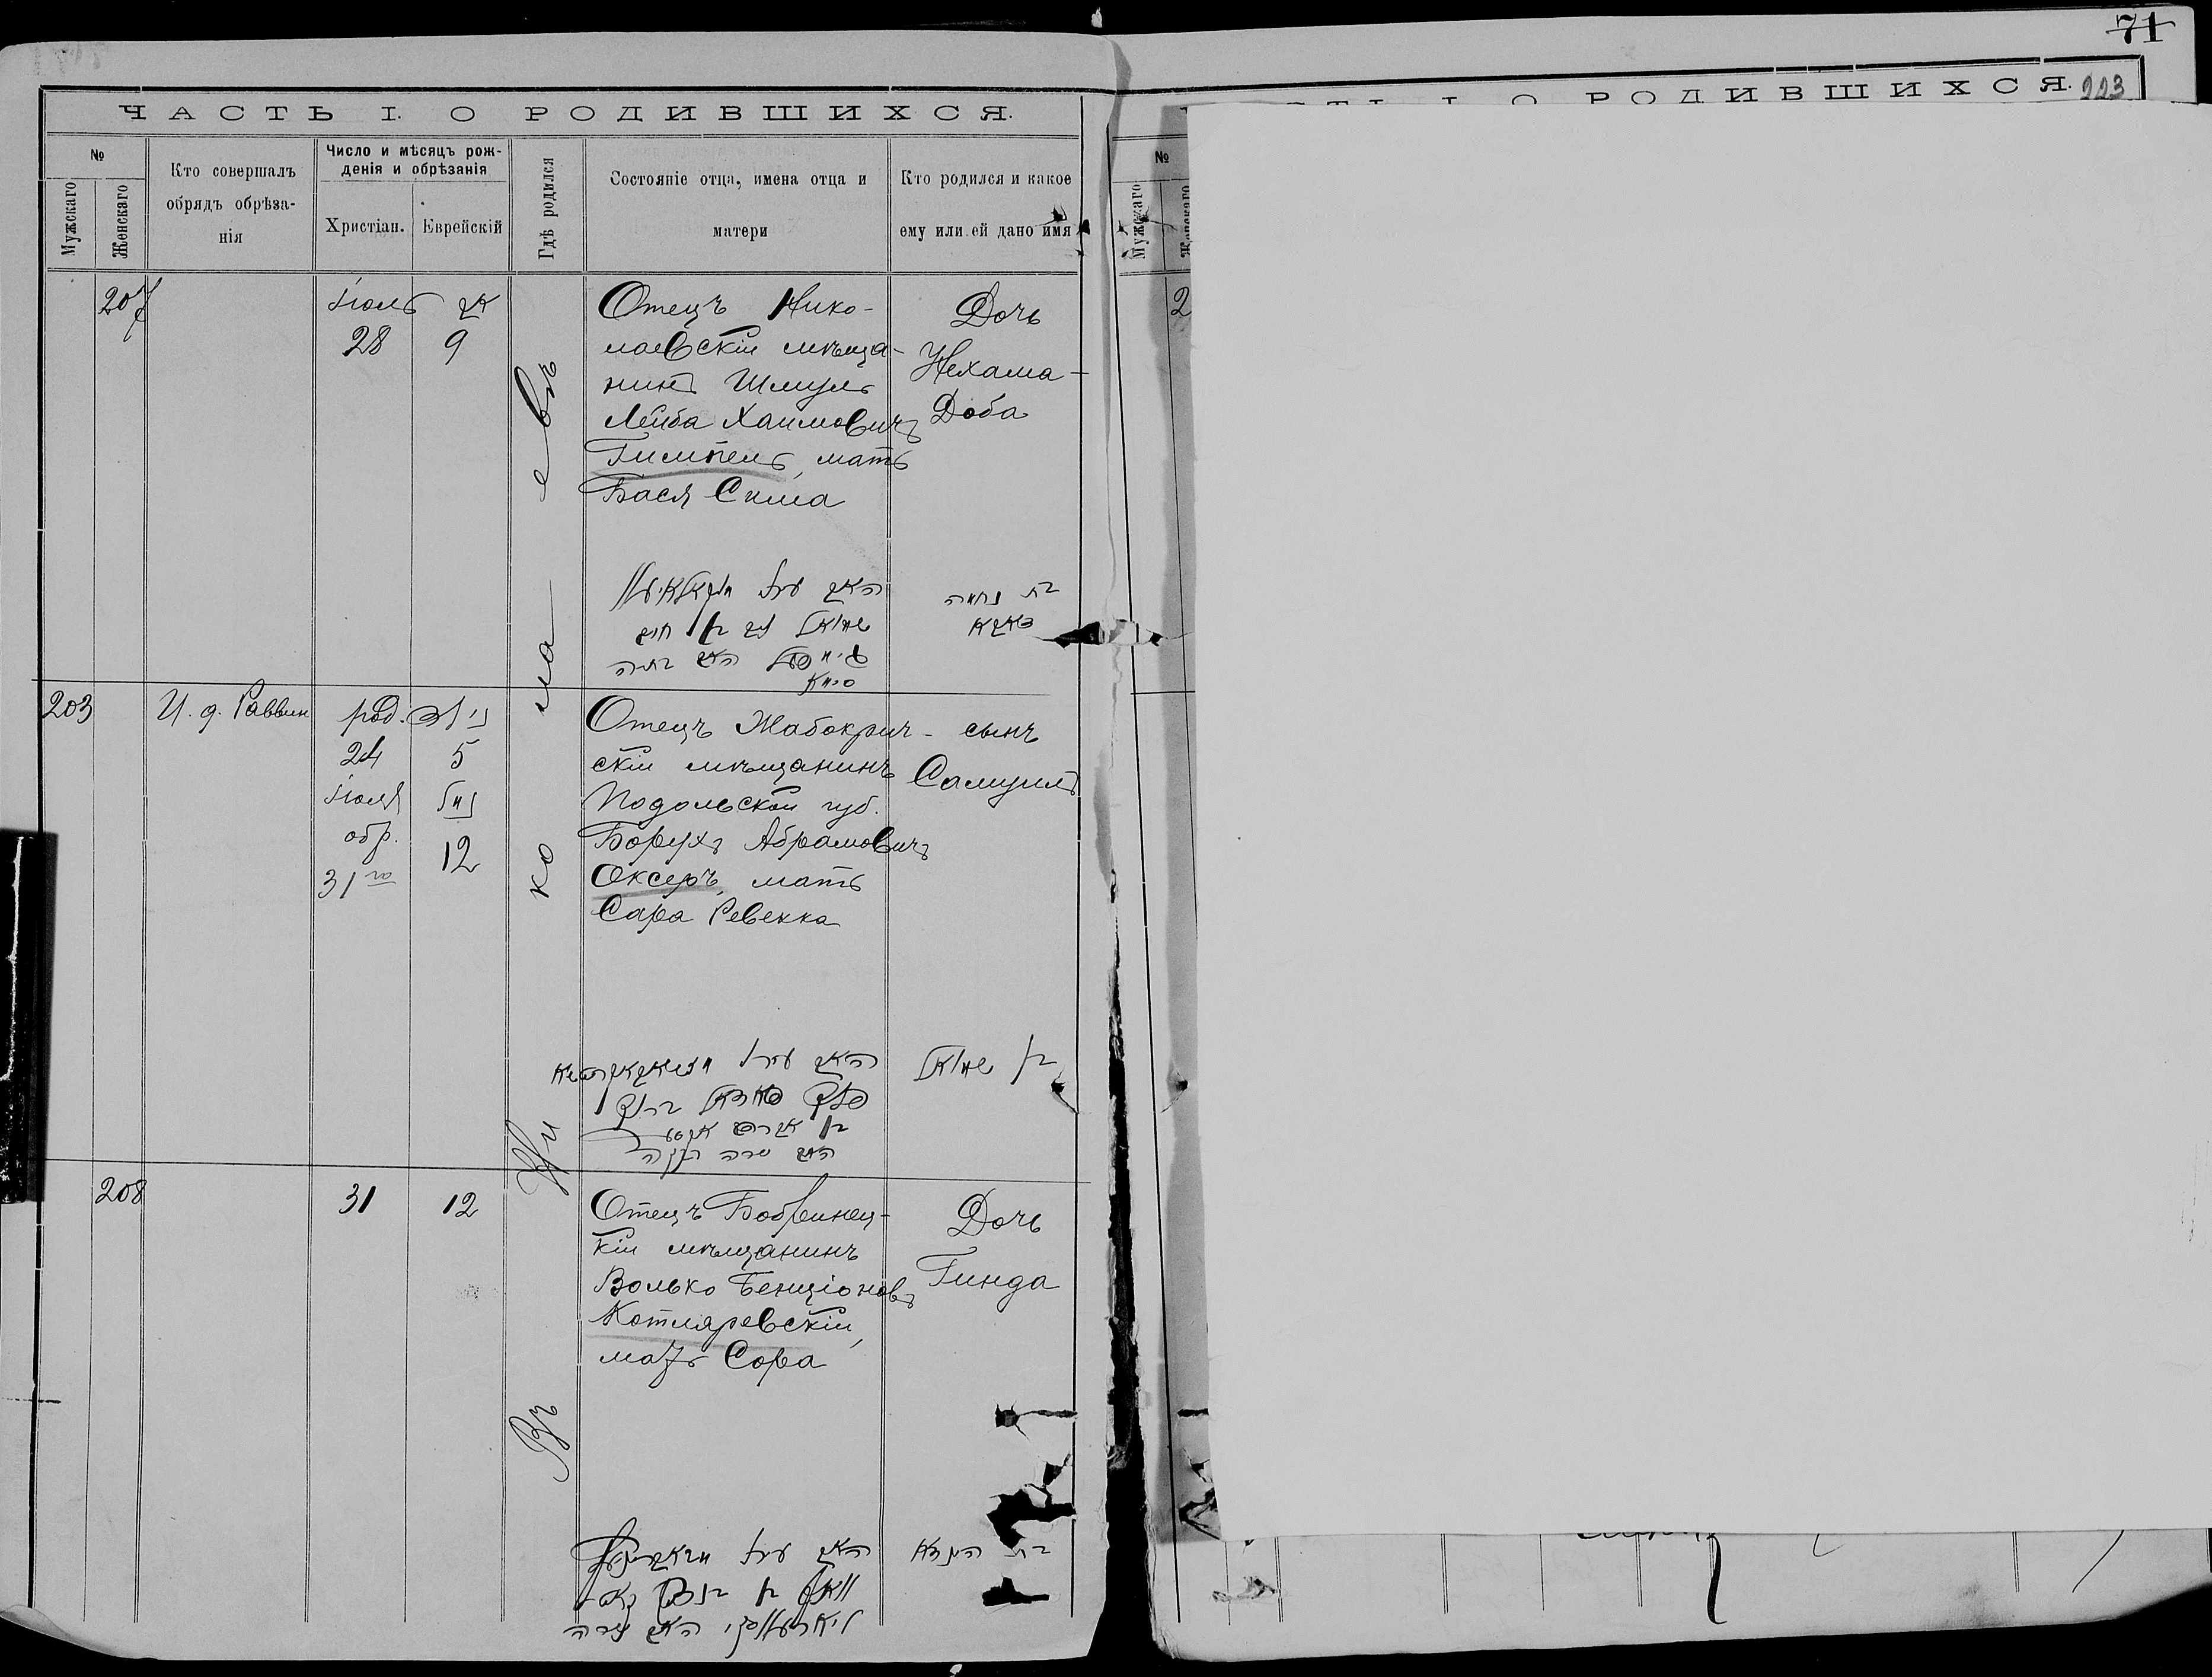 71
ЧАСТЬ I. О РОДИВШИХСЯ.
№
Мужскаго
Женскаго
Кто совершалъ
обрядъ обрѣза-
нія
Число и мѣсяцъ рож-
денія и обрѣзанія
Христіан.
Еврейскій
Гдѣ родился
Состояніе отца, имена отца и
матери
Кто родился и какое
ему или ей дано имя
Въ Николаевѣ
207
Іюль
28
אב
9
Отецъ Нико-
лаевскій мѣща-
нинъ Шмуль
Лейба Хаимовичъ
Гимпель, мать
Бася Сима
Дочь
Нехама-
Доба
האב
שמואל בן חיים
האם בתיה
סימא
בת נחמה
דאבא
203
И. д. Раввин
род.
24
Іюля
обр.
31го
5
נימל
12
Отецъ Жабокрич-
скій мѣщанинъ
Подольской губ.
Борухъ Абрамовичъ
Оксеръ, мать
Сара Ревекка
сынъ
Самуилъ
האב
ברוך
בן אברהם
האם שרה רבקה
בן שמואל
208
31
12
Отецъ Бобринец-
кій мѣщанинъ
Волько Бенціоновъ
Котляревскій,
мать Сора
Дочь
Гинда
האב
האם שרה
בת הינדא
О РОДИВШИХСЯ.
223
№
Мужскаго
Женскаго
2